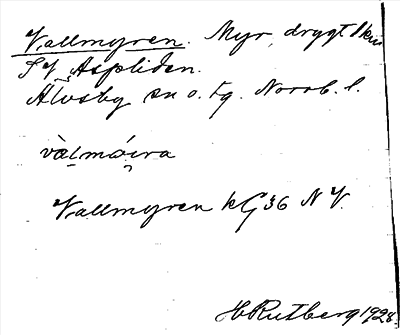 Vallmyren. Myr, drygt 1 km
SV Aspliden.
Älvsby sn o. tg. Norrb. l.
Vallmyren kG 36 NV.
HRutberg 1928.